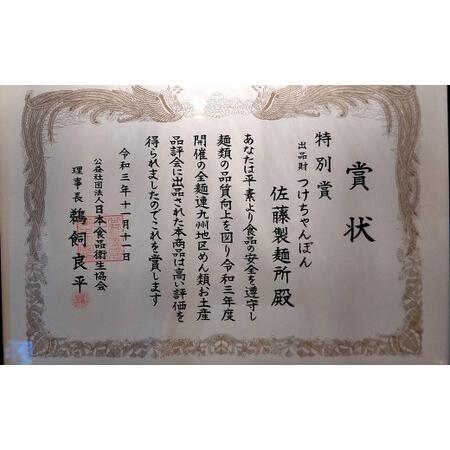 賞状
特別賞
出品財 つけちゃんぽん
佐藤製麺所殿
あなたは平素より食品の安全を遵守し
麺類の品質向上を図り令和三年度
開催の全麺連九州地区めん類お土産
品評会に出品された本商品は高い評価を
得られましたのでこれを賞します
令和三年十一月十一日
公益社団法人日本食品衛生協会
理事長 鵜飼良平